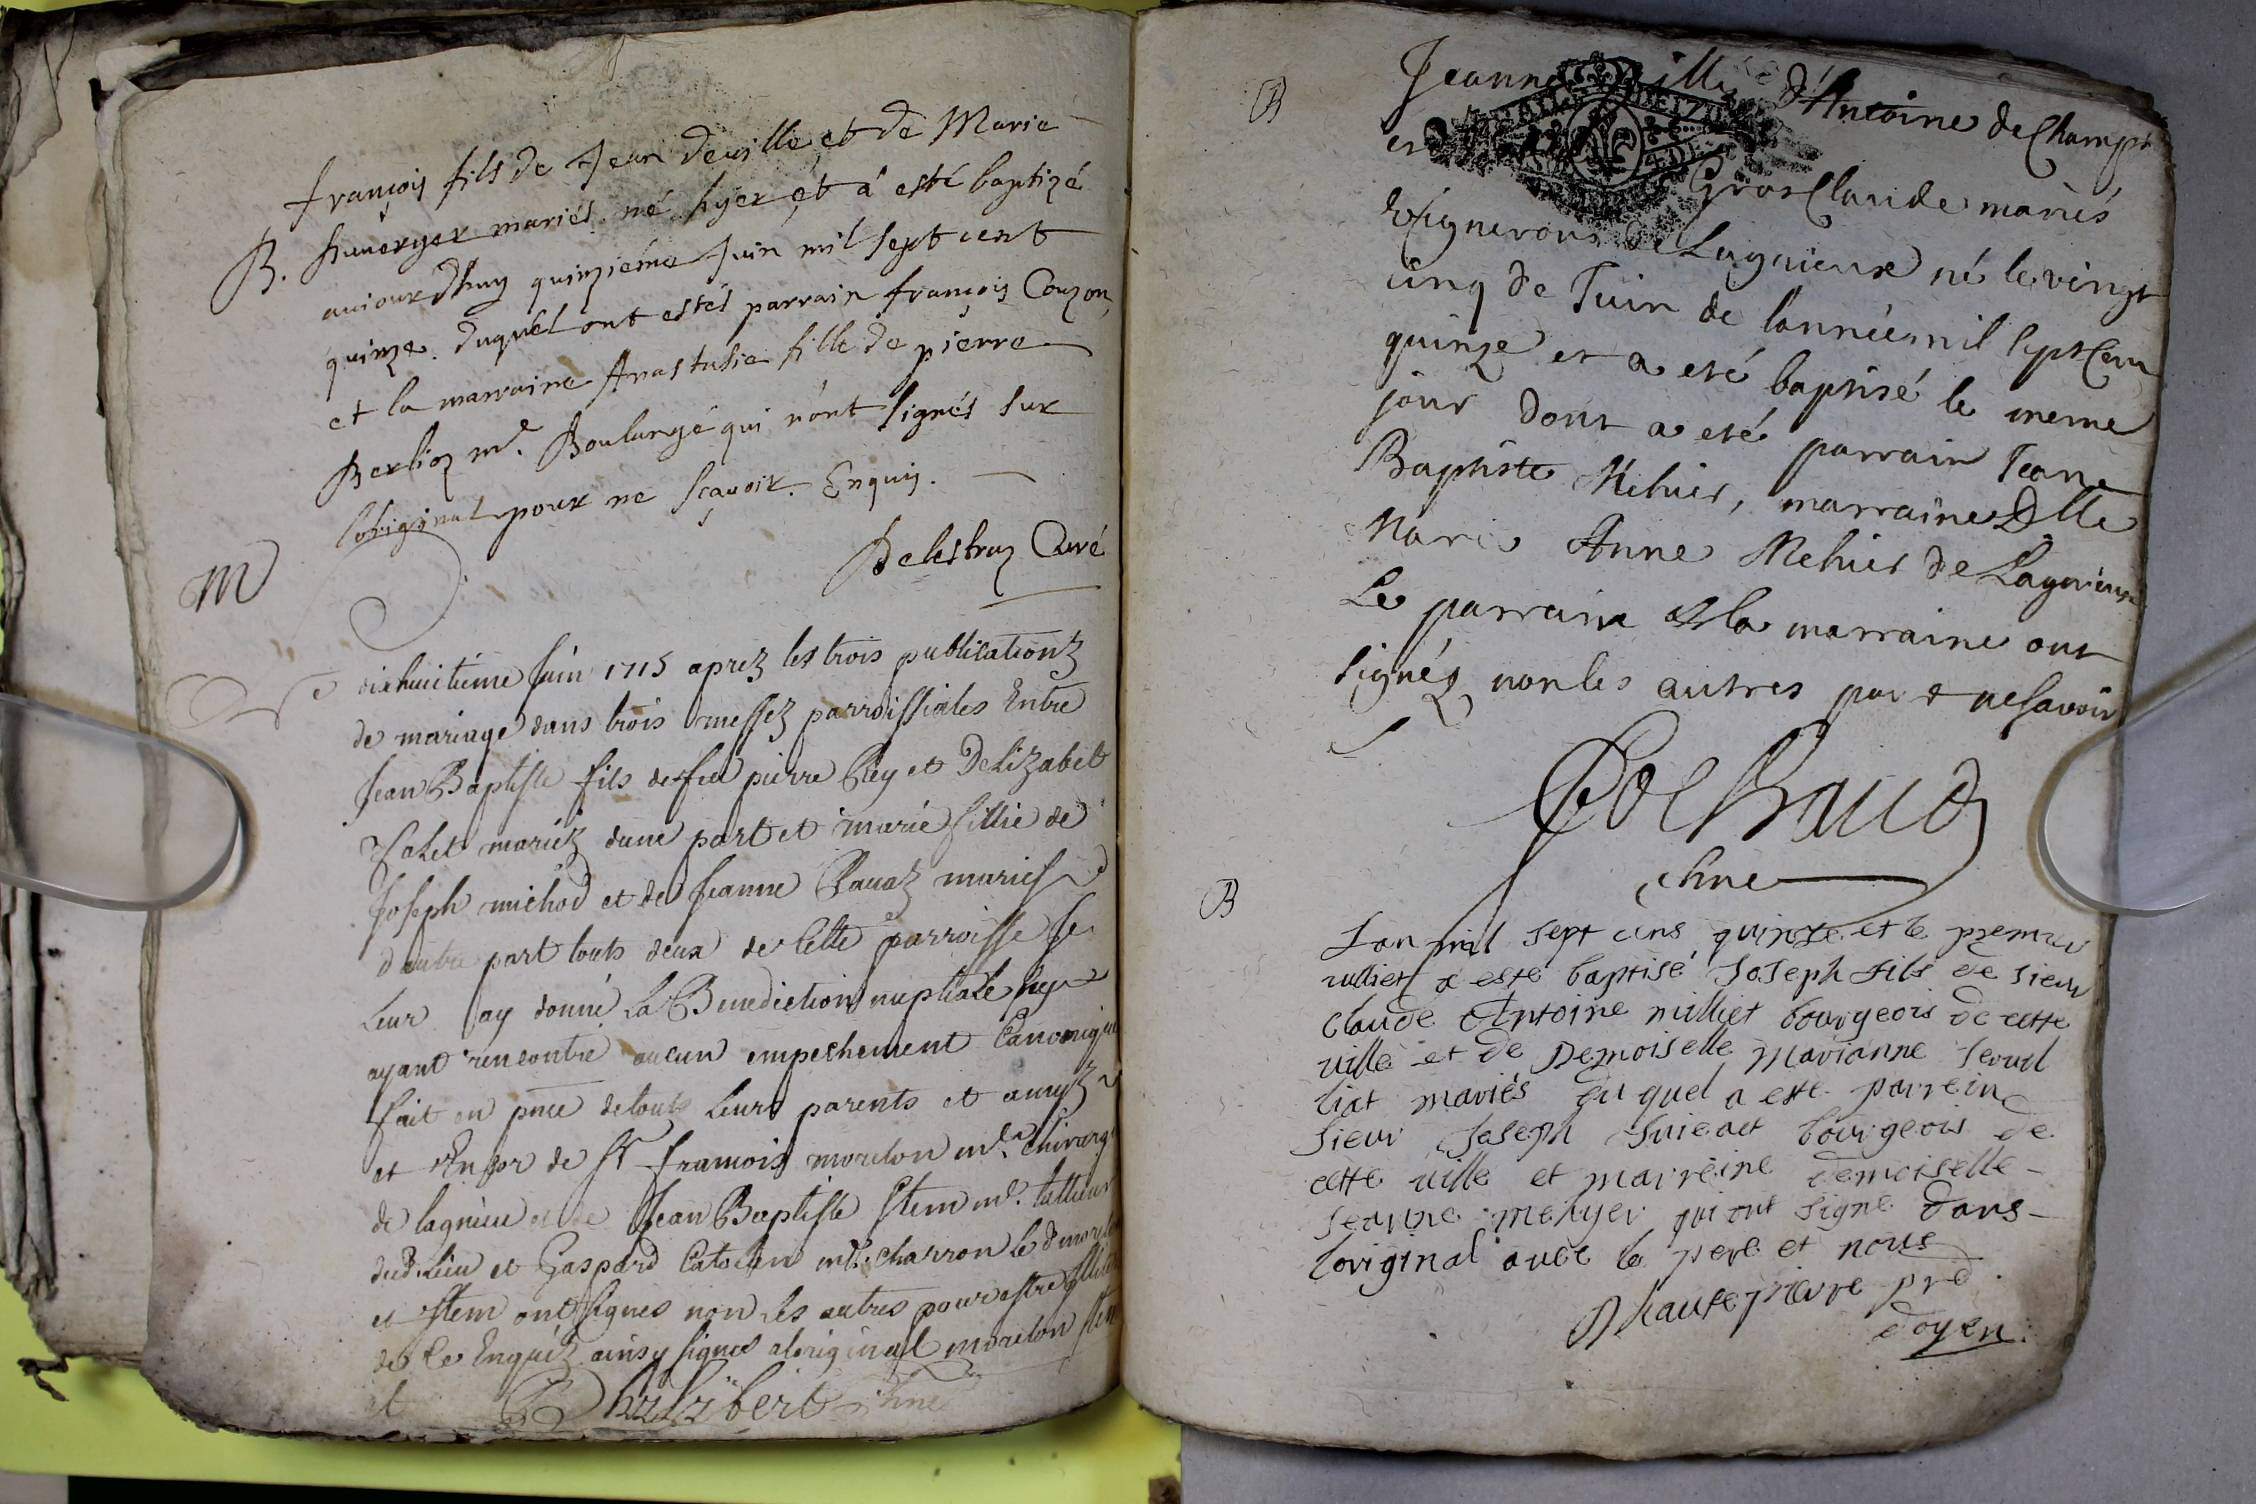 françois fils de Jean deville et de Marie
B. mariés né hyer et a esté baptizé
aujourdhuy quinziéme Juin mil sept cent
quinze. duquel ont estés parrain françois Couzon
et la marraine Anastasie fille de pierre
Berlioz me. Boulangé qui n'ont signés sur
loriginal pour ne sçavoir. Enquis.
Delestraz Curé
M
dixhuitiéme Juin 1715 aprez les trois publicationz
de mariage dans trois messez parroissiales Entre
Jean Baptiste fils de feu pierre Rey et Delizabet
mariéz dune part et marie fillie de
Joseph michod et de Jeanne Ravaz maries
dautre part touts deux de Cette parroisse Je
Leur ay donné La Benediction nuptiale ny
ayant rencontré aucun empechement Canonique
fait en pnce de touts Leurs parents et amyz
et de Sr francois morelon me chirurg
de lagnieu et de Jean Baptiste Stem me. tallieur
dud. Lieu et Gaspard me charron le d morelon
et Stem ont signes non les autres pour estre
de Ce Enquiz ainsy signes aloriginal morelon Stem
et Philibert chne
B
Jeanne fille d'Antoine de Champt
et Gros Claude mariés
Vignerons de Lagnieux né le vingt
cinq de Juin de lannée mil sept Cent
quinze et a eté baptisé le meme
jour dont a eté parrain Jean
Baptiste Mehier, marraine Dlle
Marie Anne Mehier de Lagnieux
Le parrain & la marraine ont
signéz non les autres par ne savoir
chne
B
Lan mil sept cens quinze et le premier
juilliet a esté baptisé Joseph fils de sieur
claude Antoine milliet bourgeois de cette
ville et de Demoiselle Marianne
mariés du quel a esté parrein
sieur Joseph bourgeois de
cette ville et marreine demoiselle
jeanne qui ont signe dans
loriginal avec le pere et nous
Dhautepierre pre
doyen.